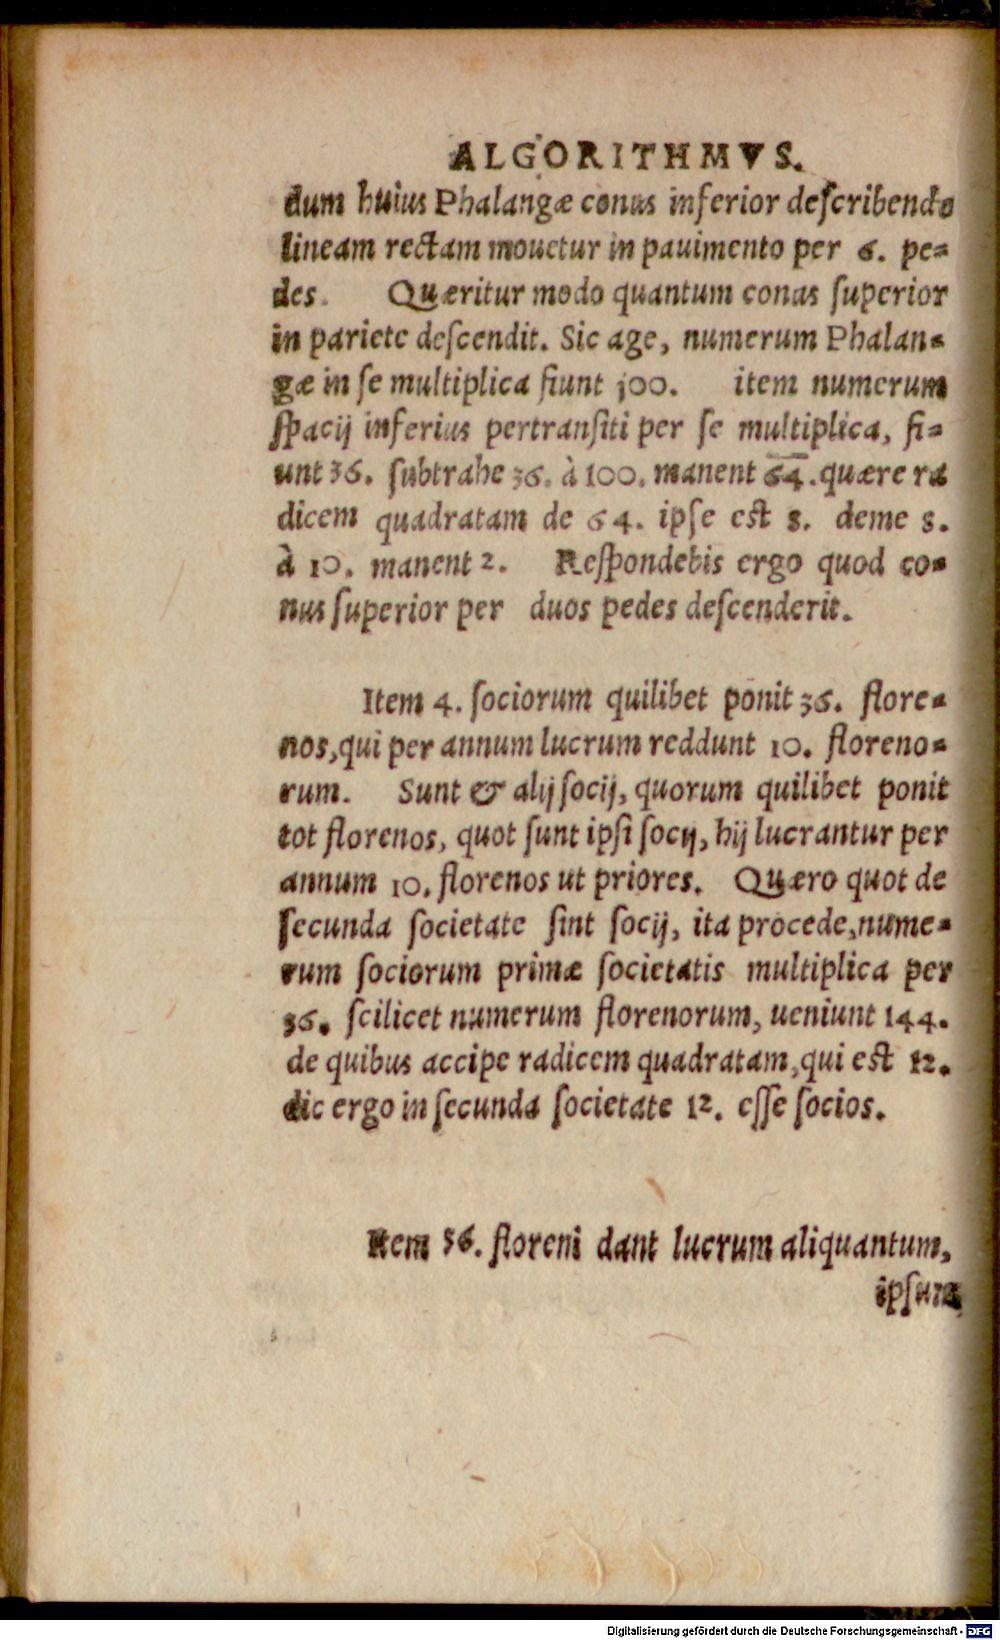 ALGORITHMVS.
dum huius Phalangæ conus inferior deſcribendo
lineam rectam mouetur in pauimento per 6. pe-
des. Quæritur modo quantum conus ſuperior
in pariete deſcendit. Sic age, numerum Phalan-
gæ in ſe multiplica fiunt 100. item numerum
ſpacij inferius pertranſiti per ſe multiplica, fi-
unt 36. ſubtrahe 36. à 100. manent 64. quære ra
dicem quadratam de 64. ipſe est 8. deme 8.
à 10. manent 2. Reſpondebis ergo quod co-
nus ſuperior per duos pedes deſcenderit.
Item 4. ſociorum quilibet ponit 36. flore-
nos, qui per annum lucrum reddunt 10. floreno-
rum. Sunt & alij ſocij, quorum quilibet ponit
tot florenos, quot ſunt ipſi ſocij, hij lucrantur per
annum 10. florenos ut priores. Quæro quot de
ſecunda ſocietate ſint ſocij, ita procede, nume-
rum ſociorum primæ ſocietatis multiplica per
36. ſcilicet numerum florenorum, ueniunt 144.
de quibus accipe radicem quadratam, qui est 12.
dic ergo in ſecunda ſocietate 12. eſſe ſocios.
Item 36. floreni dant lucrum aliquantum,
ipſum
Digitalisierung gefördert durch die Deutsche Forschungsgemeinschaft - DFG